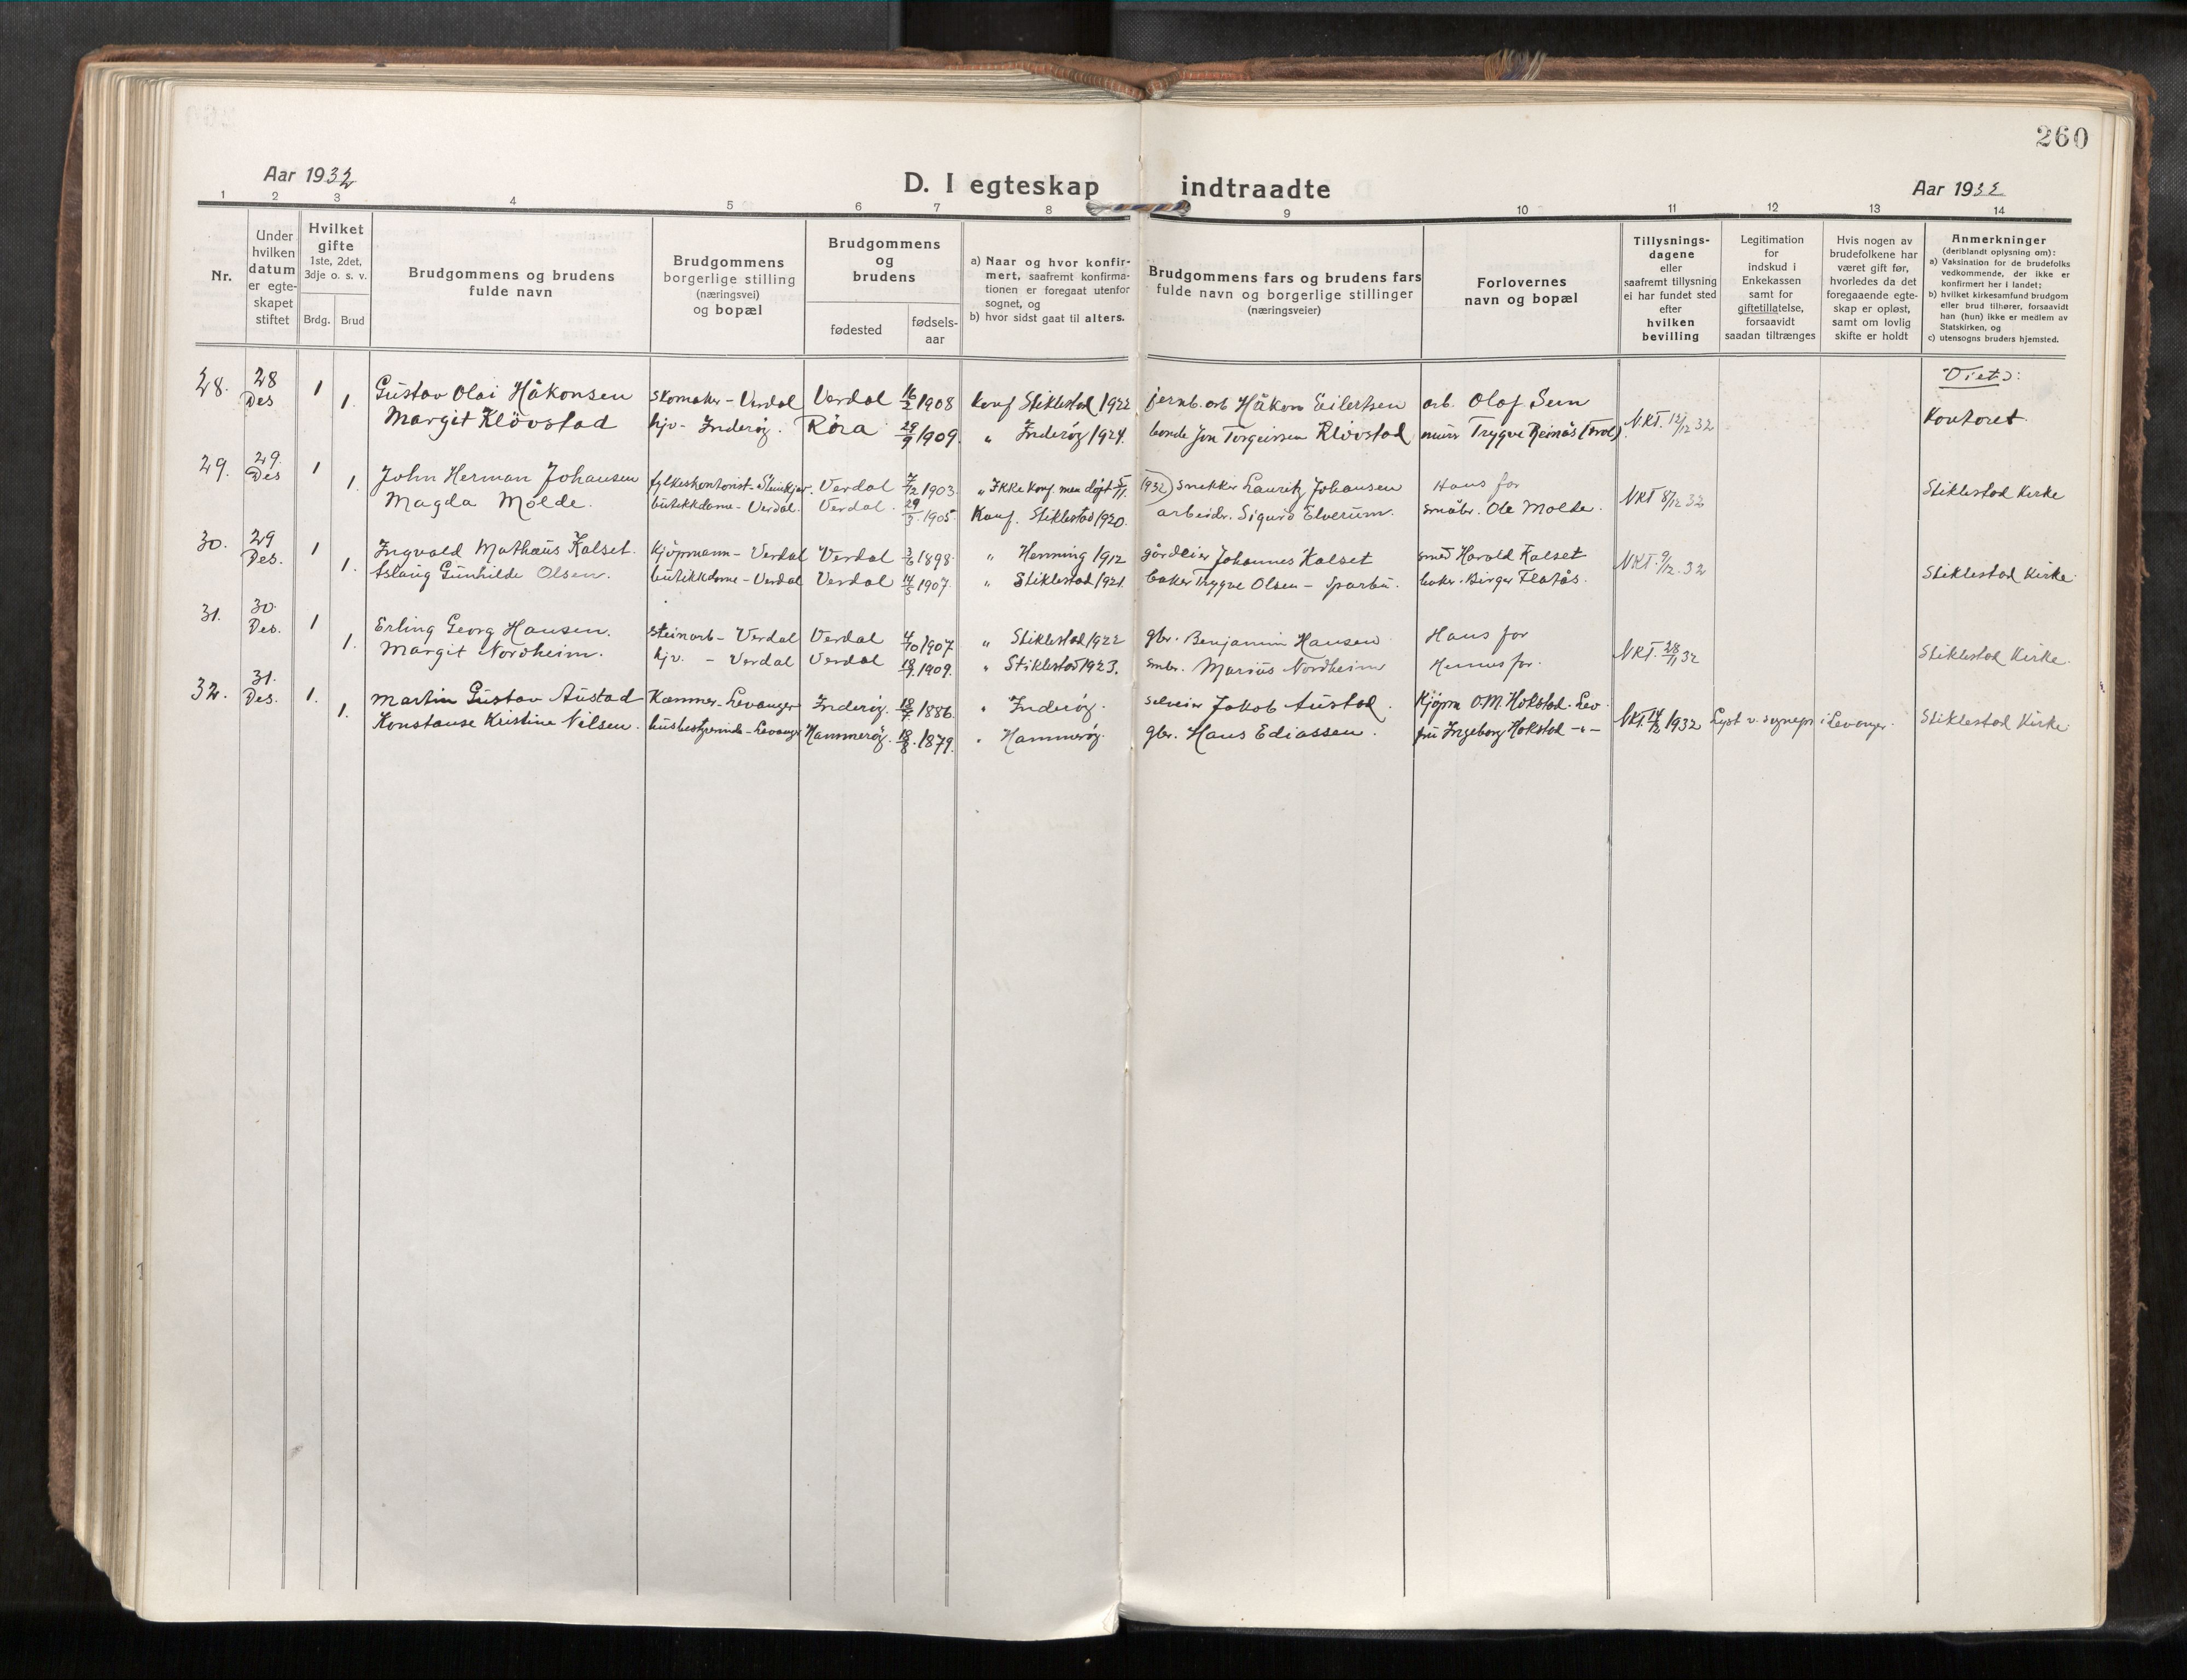 260
Aar 1932
D. I egteskap indtraadte
Aar 1932
1 2 3 4 5 6 7 8 9 10 11 12 13 14
Nr.
Under
hvilken
datum
er egte-
skapet
stiftet
Hvilket
gifte
1ste, 2det,
3dje o. s. v.
Brdg. Brud
Brudgommens og brudens
fulde navn
Brudgommens
borgerlige stilling
(næringsvei)
og bopæl
Brudgommens
og
brudens
fødested
fødsels-
aar
a) Naar og hvor konfir-
mert, saafremt konfirma-
tionen er foregaat utenfor
sognet, og
b) hvor sidst gaat til alters.
Brudgommens fars og brudens fars
fulde navn og borgerlige stillinger
(næringsveier)
Forlovernes
navn og bopæl
Tillysnings-
dagene
eller
saafremt tillysning
ei har fundet sted
efter
hvilken
bevilling
Legitimation
for
indskud i
Enkekassen
samt for
giftetillatelse,
forsaavidt
saadan tiltrænges
Hvis nogen av
brudefolkene har
været gift før,
hvorledes da det
foregaaende egte-
skap er opløst,
samt om lovlig
skifte er holdt
Anmerkninger
(deriblandt oplysning om):
a) Vaksination for de brudefolks
vedkommende, der ikke er
konfirmert her i landet;
b) hvilket kirkesamfund brudgom
eller brud tilhører, forsaavidt
han (hun) ikke er medlem av
Statskirken, og
c) utensogns bruders hjemsted.
Viet i:
28. 28 Des 1 Gustav Olai Håkonsen skomaker - Verdal Verdal 16/2 1908 konf Stiklestad 1922 jernb. arb Håkon Eilertsen arb. Olaf Sem NKT. 12/12 32 Kontoret.
1. Margit Klövstad hjv - Inderöy. Röra 29/9 1909. " Inderöy 1924. bonde Jon Torgeirsen Klövstad murer Trygve Reinås
29. 29. Des 1 John Herman Johansen fylkeskontorist - Steinkjer. Verdal 7/2 1903. " Ikke konf. men döpt 5/11. 1932) snekker Lauritz Johansen Hans far NKT 8/12 32 Stiklestad Kirke
1. Magda Molde. butikkdame - Verdal. Verdal. 29/3 1905 Konf. Stiklestad 1920. arbeidr. Sigurd Elverum. småbr. Ole Molde.
30. 29 Des. 1 Ingvald Mathæus Kalset. Kjöpmann - Verdal Verdal 3/6 1898. " Henning 1912 gårdeier Johannes Kalset smed Harald Kalset NKT. 9/12. 32 Stiklestad Kirke.
1. Aslaug Gunhilde Olsen. butikkdame - Verdal Verdal 14/5 1907. " Stiklestad 1921. baker Trygve Olsen - Sparbu. baker. Birger Flatås.
31. 30. Des. 1 Erling Georg Hansen. steinarb - Verdal Verdal 4/10 1907 " Stiklestad 1922 gbr. Benjamin Hansen Hans far NKT. 28/11 32 Stiklestad Kirke.
1. Margit Nordheim. hjv. - Verdal Verdal 18/9 1909. " Stiklestad 1923. smbr. Marius Nordheim Hennes far.
32. 31. Des. 1. Martin Gustav Austad Kæmner - Levanger Inderöy. 18/7. 1886. " Inderöy. selveier Jakob Austad. Kjöpm O.M. Hokstad. Lev. NKT. 14/12 1932 Lyst v. sognepr i Levanger. Stiklestad Kirke
1. Konstanse Kristine Nilsen. husbestyrerinde - Levanger Hammeröy. 18/8. 1879. " Hammeröy. gbr. Hans Ediassen. fru Ingeborg Hokstad -"-